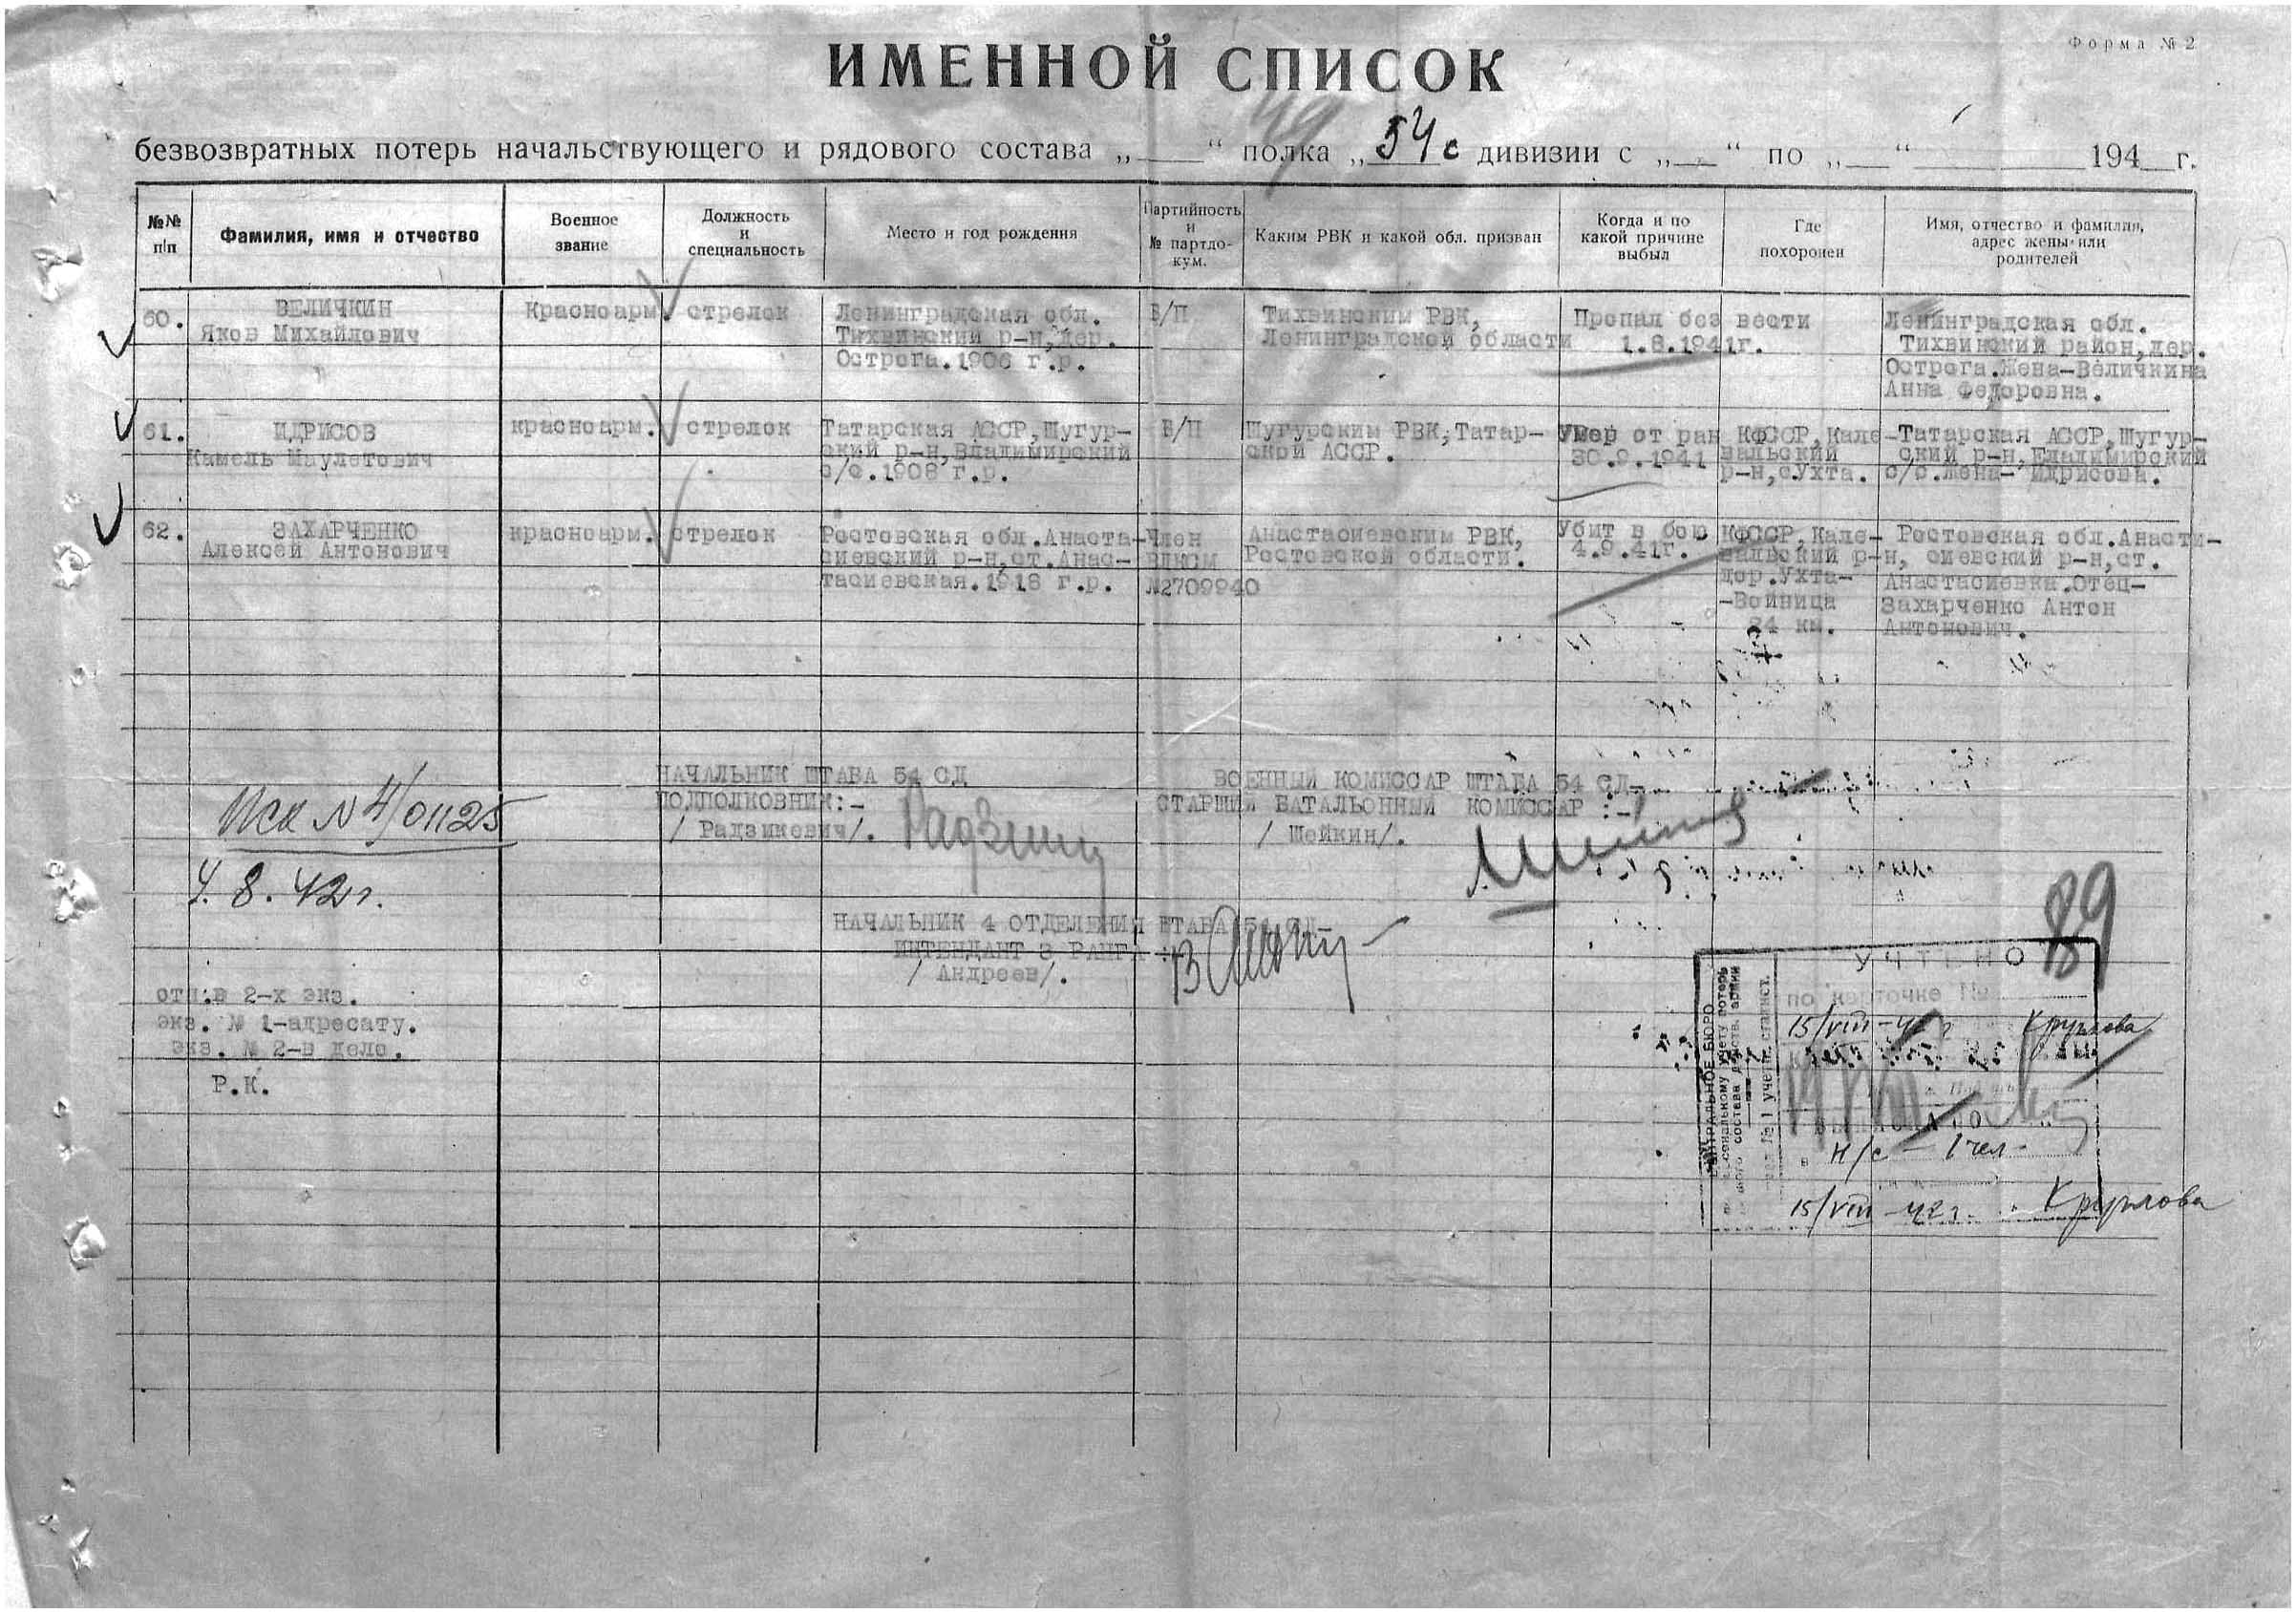 Форма № 2
ИМЕННОЙ СПИСОК
безвозвратных потерь начальствующего и рядового состава „ “ полка „ 54 с дивизии с „ “ по „ “ 194 г.
№№ п/п
Фамилия, имя и отчество
Военное звание
Должность и специальность
Место и год рождения
Партийность и № партдокум.
Каким РВК и какой обл. призван
Когда и по какой причине выбыл
Где похоронен
Имя, отчество и фамилия, адрес жены или родителей
60.
ВЕЛИЧКИН
Яков Михайлович
Красноарм.
стрелок
Ленинградская обл.
Тихвинский р-н, дер.
Острога. 1906 г.р.
Б/П
Тихвинским РВК,
Ленинградской области
Пропал без вести
1.8.1941г.
Ленинградская обл.
Тихвинский район, дер.
Острога. Жена-Величкина
Анна Федоровна.
61.
ИДРИСОВ
Камель Маулетович
красноарм.
стрелок
Татарская АССР, Шугур-
ский р-н, Владимирский
с/с. 1908 г.р.
Б/П
Шугурским РВК, Татар-
ской АССР.
Умер от ран
30.9.1941
КФССР, Кале-
вальский
р-н, с.Ухта.
Татарская АССР, Шугур-
ский р-н, Владимирский
с/с. Жена- Идрисова.
62.
ЗАХАРЧЕНКО
Алексей Антонович
красноарм.
стрелок
Ростовская обл. Анаста-
сиевский р-н, ст. Анас-
тасиевская. 1918 г.р.
Член
ВЛКСМ
№2709940
Анастасиевским РВК,
Ростовской области.
Убит в бою
4.9.41г.
КФССР, Кале-
вальский р-н,
дор. Ухта-
-Войница
34 км.
Ростовская обл. Анасти-
сиевский р-н, ст.
Анастасиевка. Отец-
Захарченко Антон
Антонович.
НАЧАЛЬНИК ШТАБА 54 СД
ПОДПОЛКОВНИК:-
/ Радзикевич/.
ВОЕННЫЙ КОМИССАР ШТАБА 54 СД-
СТАРШИЙ БАТАЛЬОННЫЙ КОМИССАР :-
/ Шейкин/.
Исх N 4/01125
4. 8. 42 г.
НАЧАЛЬНИК 4 ОТДЕЛЕНИЯ ШТАБА 54 СД-
ИНТЕНДАНТ 3 РАНГА :-
/ Андреев/.
отп. в 2-х экз.
экз. № 1-адресату.
экз. № 2-в дело.
Р.К.
89
УЧТЕНО
по карточке №
15/VIII-42 г Круглова
н/с - 1 чел.
15/VIII-42 г. Круглова
ЦЕНТРАЛЬНОЕ БЮРО